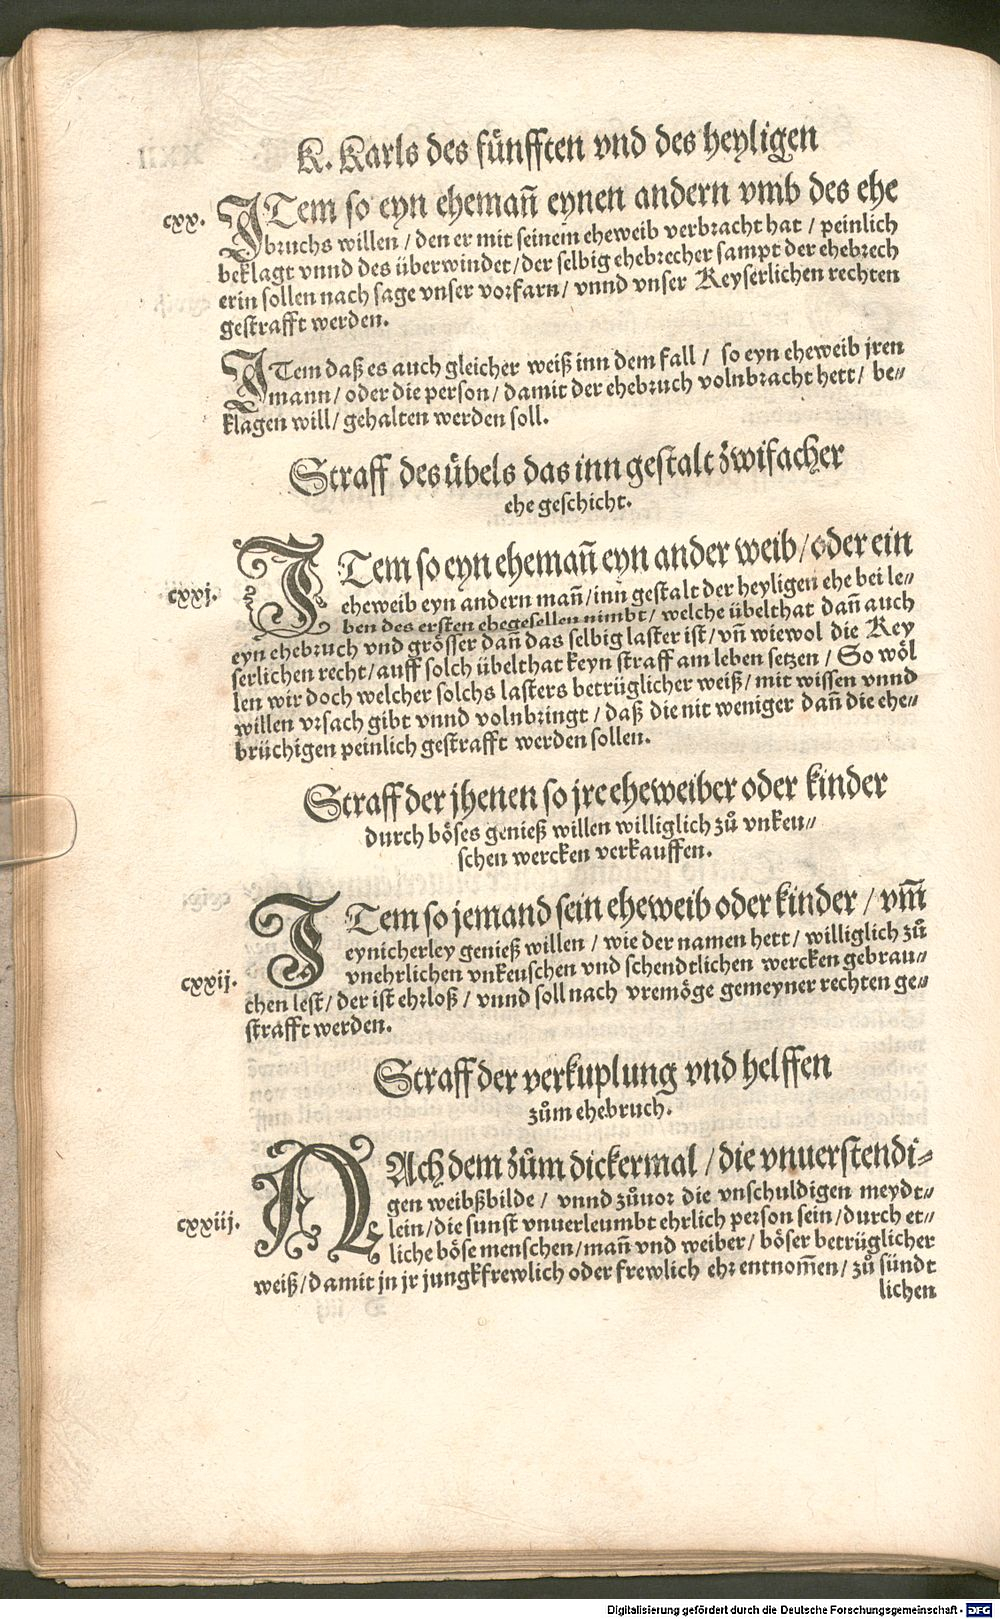 K. Karls des fünfften vnd des heyligen
cxx. ITem so eyn ehemañ eynen andern vmb des ehe
bruchs willen / den er mit seinem eheweib verbracht hat / peinlich
beklagt vnnd des überwindet / der selbig ehebrecher sampt der ehebrech
erin sollen nach sage vnser vorfarn / vnnd vnser Keyserlichen rechten
gestrafft werden.
ITem daß es auch gleicher weiß inn dem fall / so eyn eheweib jren
mann / oder die person / damit der ehebruch volnbracht hett / be⸗
klagen will / gehalten werden soll.
Straff des übels das inn gestalt zwifacher
ehe geschicht.
cxxj. ITem so eyn ehemañ eyn ander weib / oder ein
eheweib eyn andern mañ / inn gestalt der heyligen ehe bei le⸗
ben des ersten ehegesellen nimbt / welche übelthat dañ auch
eyn ehebruch vnd grösser dañ das selbig laster ist / vñ wiewol die Key
serlichen recht / auff solch übelthat keyn straff am leben setzen / So wöl
len wir doch welcher solchs lasters betrüglicher weiß / mit wissen vnnd
willen vrsach gibt vnnd volnbringt / daß die nit weniger dañ die ehe⸗
brüchigen peinlich gestrafft werden sollen.
Straff der jhenen so jre eheweiber oder kinder
durch böses genieß willen williglich zů vnkeu⸗
schen wercken verkauffen.
cxxij. ITem so jemand sein eheweib oder kinder / vm̃
eynicherley genieß willen / wie der namen hett / williglich zů
vnehrlichen vnkeuschen vnd schendtlichen wercken gebrau⸗
chen lest / der ist ehrloß / vnnd soll nach vremöge gemeyner rechten ge⸗
strafft werden.
Straff der verkuplung vnd helffen
zům ehebruch.
cxxiij. NAch dem zům dickermal / die vnuerstendi⸗
gen weibßbilde / vnnd zůuor die vnschuldigen meydt⸗
lein / die sunst vnuerleumbt ehrlich person sein / durch et⸗
liche böse menschen / mañ vnd weiber / böser betrüglicher
weiß / damit jn jr jungkfrewlich oder frewlich ehr entnom̃en / zů sündt
lichen
Digitalisierung gefördert durch die Deutsche Forschungsgemeinschaft - DFG